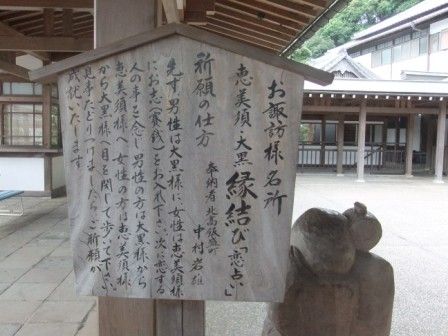 お諏訪様名所
恵美須・大黒 縁結び「恋占い」
奉納者 北高張盛町
中村岩雄
祈願の仕方
先ず、男性は大黒様に、女性は恵美須様
にお志(賽銭)をお入れ下さい。次に恋する
人の事を念じ男性の方は大黒様から
恵美須様へ、女性の方は恵美須様
から大黒様へ目を閉じて歩いて下さい
見事たどりつけましたら、ご祈願が
成就いたします